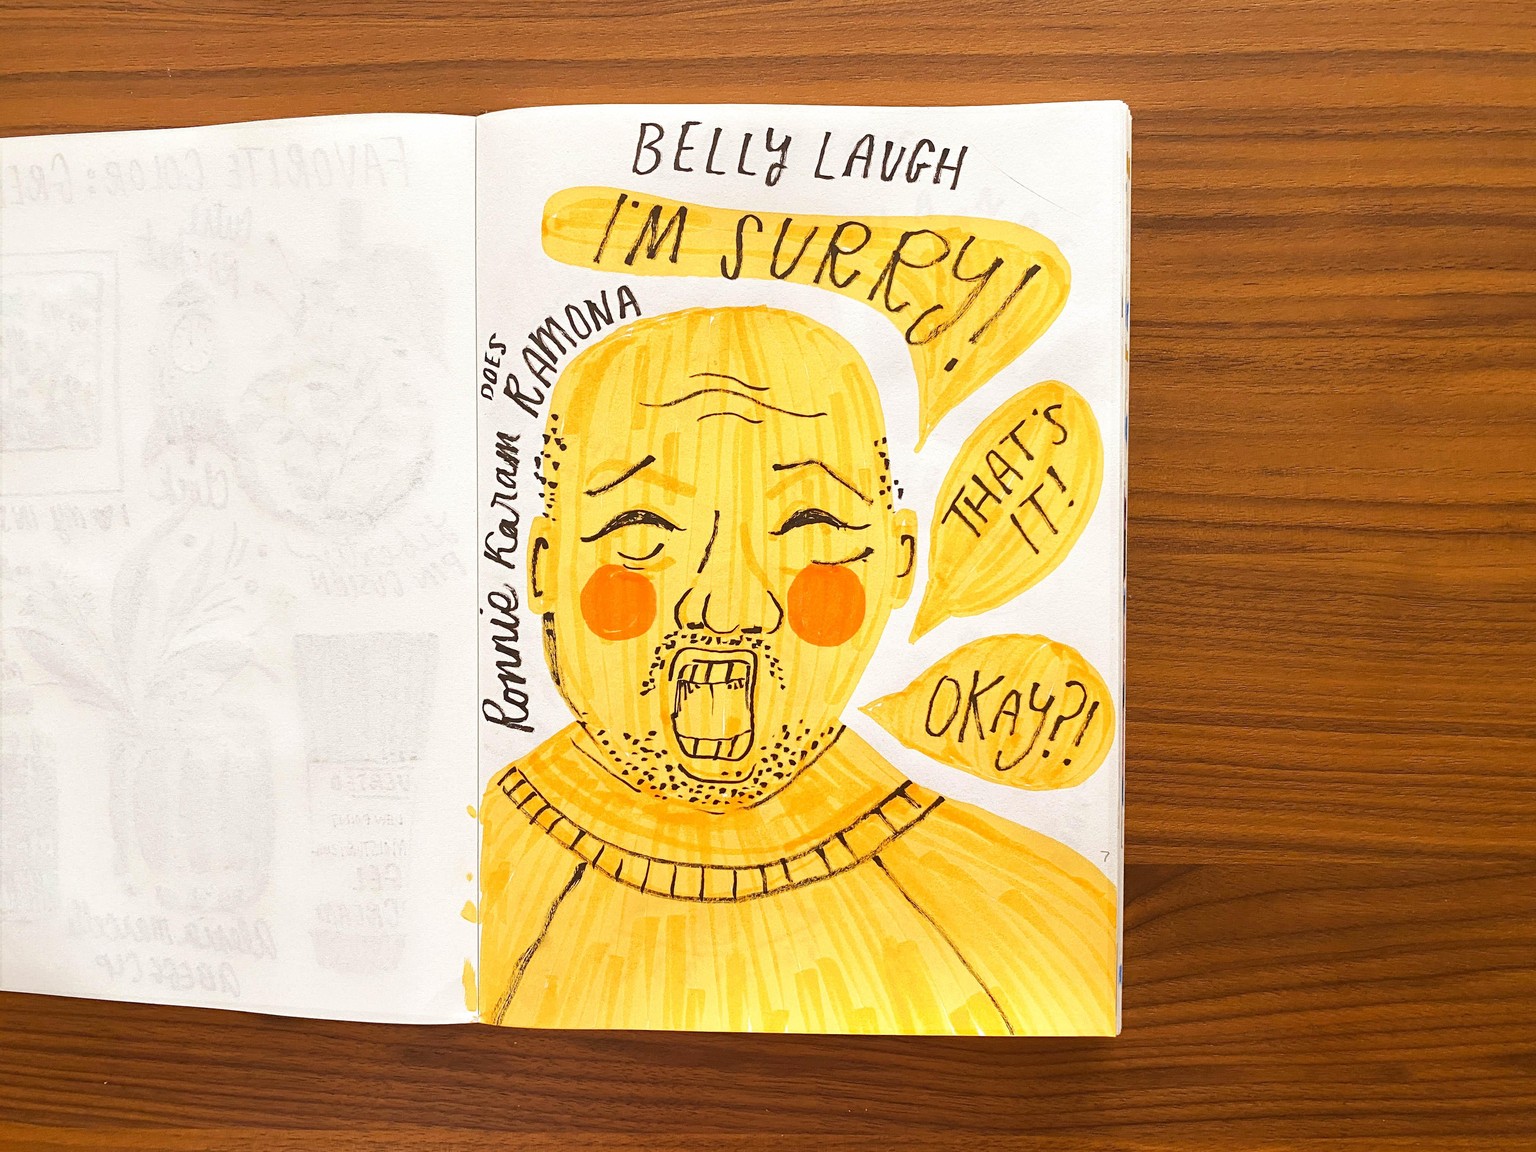 BELLY LAUGH
I'M SURRY!
DOES
RAMONA
Ronnie Karam
THAT'S
IT!
OKAY?!
7
FAVORITE COLOR: GRE